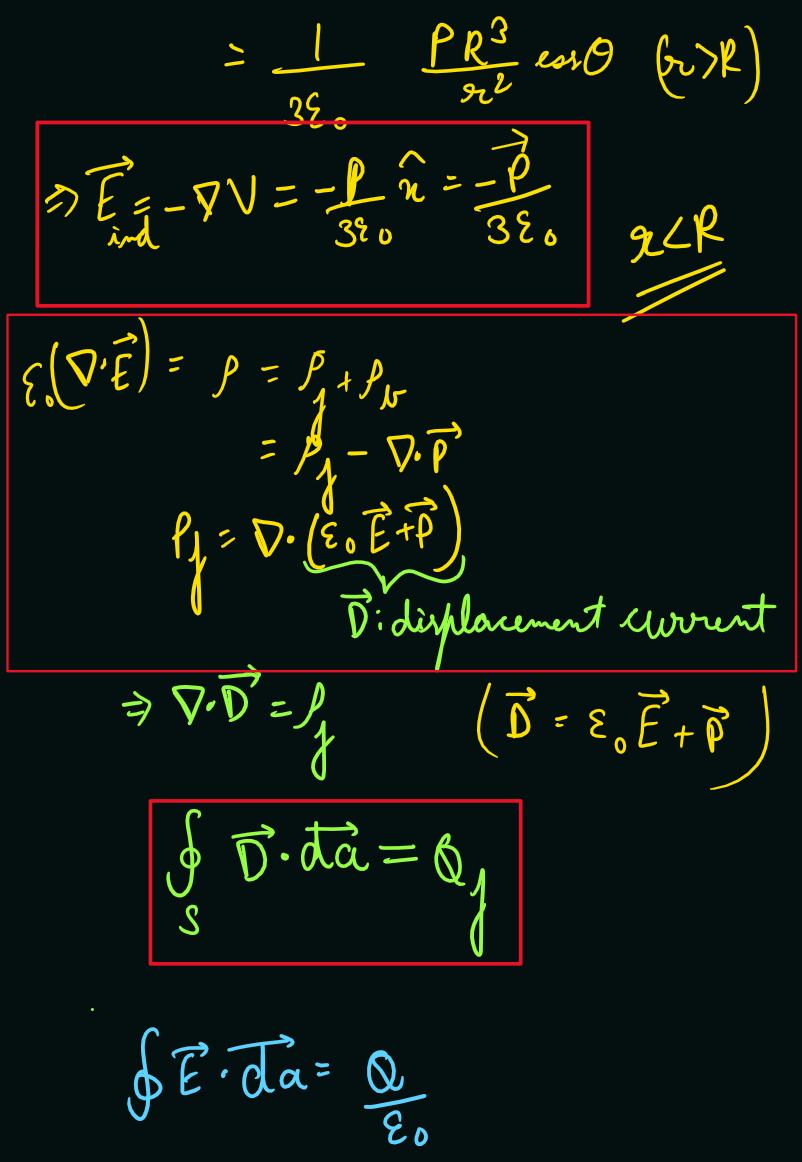 = 1/3ε₀ PR³/r² cosθ (r>R)
⇒ E⃗ind = -∇V = -P/3ε₀ x̂ = -P⃗/3ε₀
r<R
ε₀(∇·E⃗) = ρ = ρf + ρb
= ρf - ∇·P⃗
ρf = ∇·(ε₀E⃗+P⃗)
D⃗: displacement current
⇒ ∇·D⃗ = ρf (D⃗ = ε₀E⃗ + P⃗)
∮S D⃗·da⃗ = Qf
∮E⃗·da⃗ = Q/ε₀